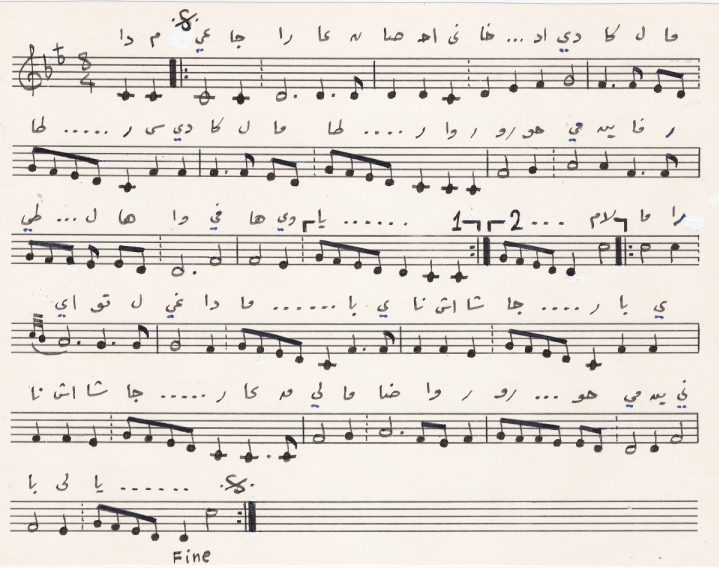 دا م عي جا را عا ن صا اح نى خا ... اد دي كا ل ما
8
4
طا ..... ر سى دي كا ل ما طا .... ر وا رو حو مي ين فا ر
طي ... ل ها وا في ها دي يا ...... 1 2 ... لام ما را
اي تو ل غي دا ما ...... با ي نا اش شا جا .... ر با ي
نا اش شا جا ..... ر عا من لي ما ضا وا ر رو ... حو مي ين ني
با لى يا ......
Fine